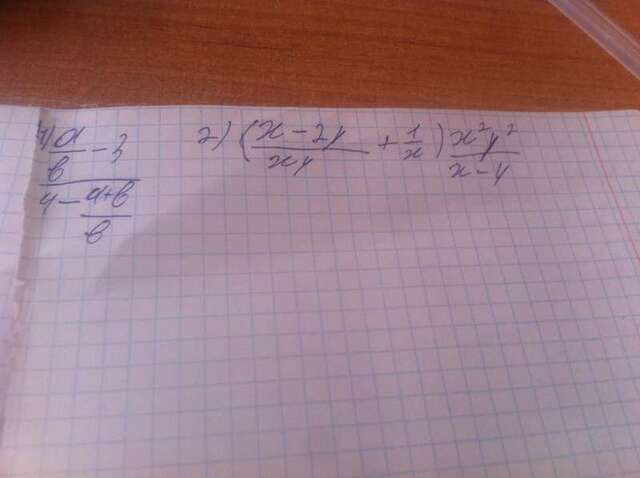 1) (a/в - 3)/(4 - (a+в)/в)
2) ((x - 2y)/(xy) + 1/x) (x²y²)/(x - y)